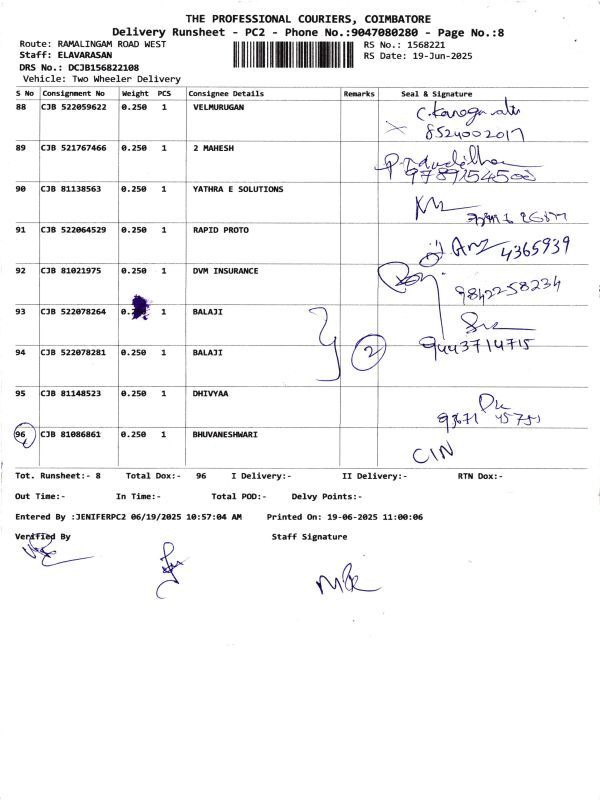 THE PROFESSIONAL COURIERS, COIMBATORE
Delivery Runsheet - PC2 - Phone No.:9047080280 - Page No.:8
Route: RAMALINGAM ROAD WEST RS No.: 1568221
Staff: ELAVARASAN RS Date: 19-Jun-2025
DRS No.: DCJB156822108
Vehicle: Two Wheeler Delivery
S No Consignment No Weight PCS Consignee Details Remarks Seal & Signature
88 CJB 522059622 0.250 1 VELMURUGAN
8524002017
89 CJB 521767466 0.250 1 2 MAHESH
9789154500
90 CJB 81138563 0.250 1 YATHRA E SOLUTIONS
91 CJB 522064529 0.250 1 RAPID PROTO 4365939
92 CJB 81021975 0.250 1 DVM INSURANCE
9842258234
93 CJB 522078264 1 BALAJI
9443714715
94 CJB 522078281 0.250 1 BALAJI 2
95 CJB 81148523 0.250 1 DHIVYAA
96 CJB 81086861 0.250 1 BHUVANESHWARI
CIN
Tot. Runsheet:- 8 Total Dox:- 96 I Delivery:- II Delivery:- RTN Dox:-
Out Time:- In Time:- Total POD:- Delvy Points:-
Entered By :JENIFERPC2 06/19/2025 10:57:04 AM Printed On: 19-06-2025 11:00:06
Verified By Staff Signature